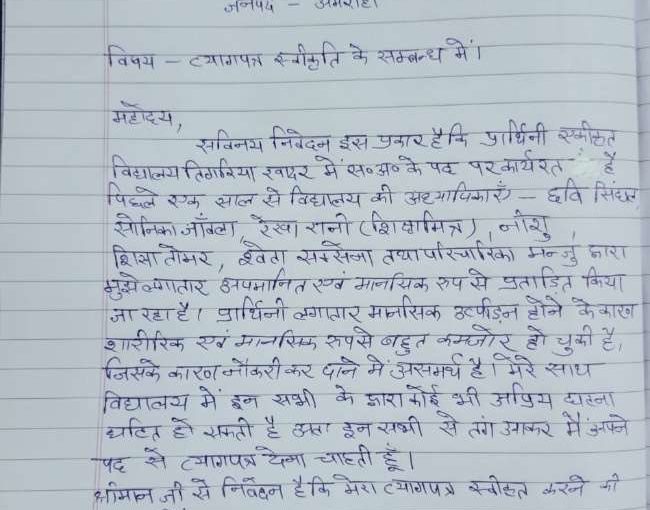 जनपद - अमरोहा
विषय - त्यागपत्र स्वीकृति के सम्बन्ध में।
महोदय,
सविनय निवेदन इस प्रकार है कि प्रार्थिनी एकीकृत
विद्यालय तिगरिया खादर में स०अ० के पद पर कार्यरत है
पिछले एक साल से विद्यालय की अध्यापिकाएँ - छवि सिंघल,
सोनिका जाँवला, रेखा रानी (शिक्षामित्र), नीशु,
शिखा तोमर, श्वेता सक्सेना तथा परिचारिका मन्जु द्वारा
मुझे लगातार अपमानित एवं मानसिक रूप से प्रताड़ित किया
जा रहा है। प्रार्थिनी लगातार मानसिक उत्पीड़न होने के कारण
शारीरिक एवं मानसिक रूप से बहुत कमजोर हो चुकी है,
जिसके कारण नौकरी कर पाने में असमर्थ है। मेरे साथ
विद्यालय में इन सभी के द्वारा कोई भी अप्रिय घटना
घटित हो सकती है अतः इन सभी से तंग आकर मैं अपने
पद से त्यागपत्र देना चाहती हूँ।
श्रीमान जी से निवेदन है कि मेरा त्यागपत्र स्वीकृत करने की